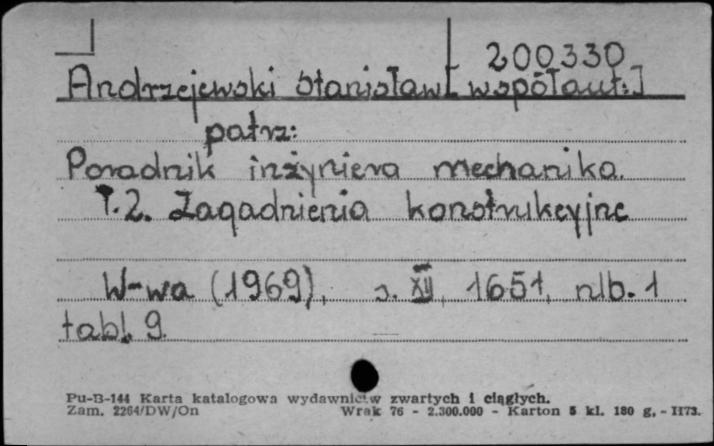 200330
Andrzejewski Stanisław [współaut.]
patrz:
Poradnik inżyniera mechanika.
T.2. Zagadnienia konstrukcyjne
W-wa (1969), s. XII, 1651, nlb. 1
tabl. 9.
Pu-B-144 Karta katalogowa wydawnictw zwartych i ciągłych.
Zam. 2264/DW/On Wrak 76 - 2.300.000 - Karton 5 kl. 180 g. - II73.